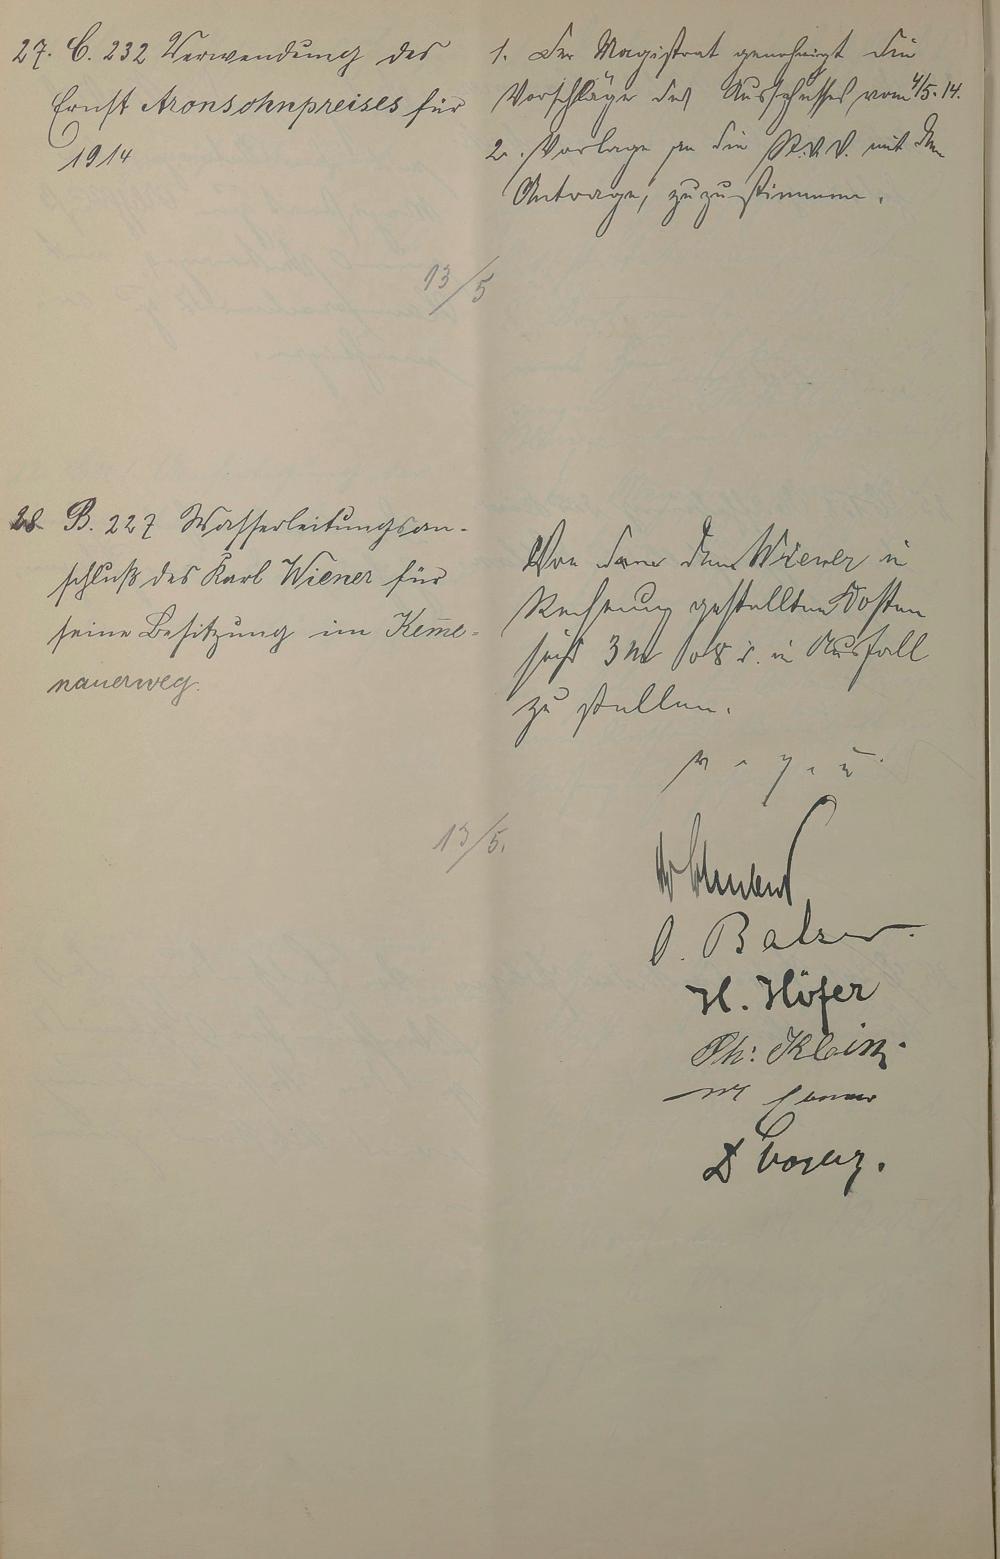 27. C. 232 Verwendung des
Ernst Aronsohnpreises für
1914
1. Der Magistrat genehmigt die
Vorschläge des Ausschusses vom 4/5. 14.
2. Vorlage an die St.V.V. mit dem
Antrage, zuzustimmen.
13/5
28. B. 227 Wasserleitungsan-
schluß des Karl Wiener für
seine Besitzung im Keme-
nauerweg.
Von dem Wiener in
Rechnung gestellten Kosten
sind 3 M in Ausfall
zu stellen.
v. g. u.
13/5.
O. Balzer.
H. Höfer
Ph: Klein